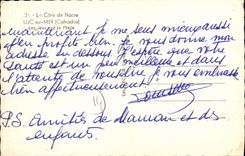 21 - La Côte de Nacre
LUC-sur-MER (Calvados)
Les Jeux sur la Plage
maintenant je me sens mieux aussi
bien. Je vous donne mon
adresse du dessus. J'espère que votre
santé est un peu meilleure et dans
l'attente de vous lire je vous embrasse
bien affectueusement.
P.S. Amitiés de Maman et des
enfants.